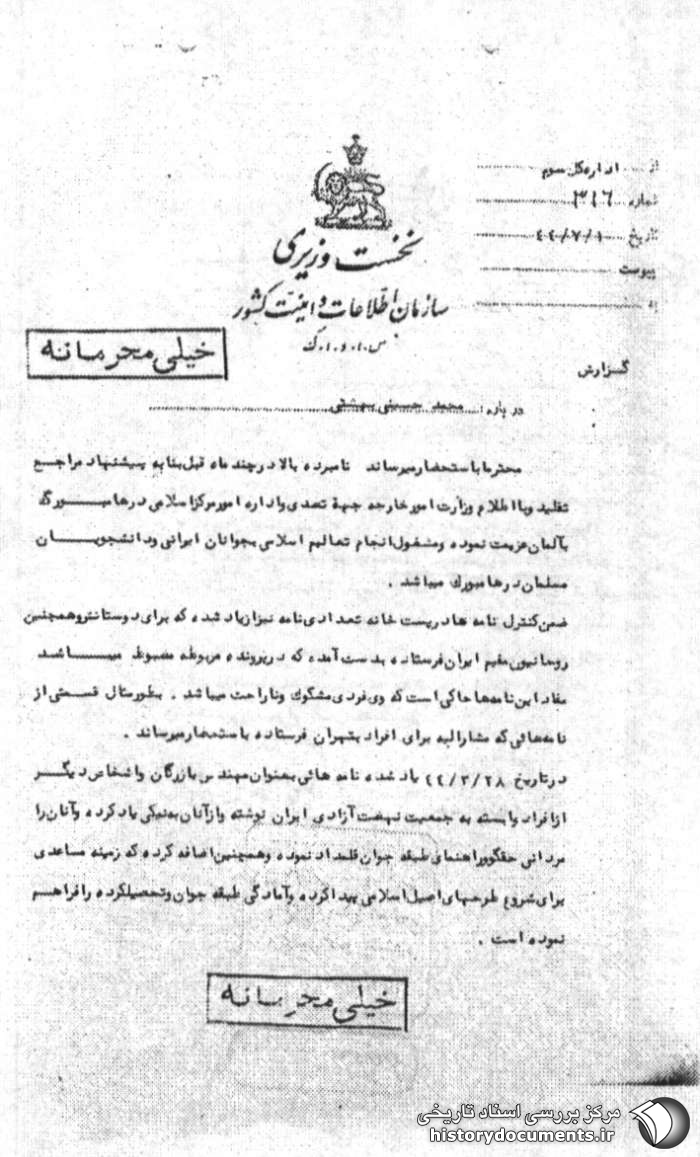 از اداره کل سوم
شماره ۳۱۶
تاریخ ۴۴/۷/۱
پیوست
نخست وزیری
سازمان اطلاعات و امنیت کشور
س.ا.و.ا.ک
خیلی محرمانه
گزارش
درباره: محمد حسینی بهشتی
محترما باستحضار میرساند نامبرده بالا در چند ماه قبل بنا به پیشنهاد مراجع
تقلید و با اطلاع وزارت امور خارجه جهة تصدی و اداره امور مرکز اسلامی در هامبورگ
بآلمان عزیمت نموده و مشغول انجام تعالیم اسلامی بجوانان ایرانی و دانشجویان
مسلمان در هامبورک میباشد .
ضمن کنترل نامه ها در پست خانه تعدادی نامه نیز از یاد شده که برای دوستانش و همچنین
روحانیون مقیم ایران فرستاده بدست آمده که در پرونده مربوطه مضبوط میباشد
مفاد این نامه‌ها حاکی است که وی فردی مشکوک و ناراحت میباشد . بطور مثال قسمتی از
نامه‌هائی که مشارالیه برای افراد بتهران فرستاده باستحضار میرساند .
در تاریخ ۴۴/۳/۲۸ یاد شده نامه هائی بعنوان مهندس بازرگان و اشخاص دیگر
از افراد وابسته به جمعیت نهضت آزادی ایران نوشته و از آنان به نیکی یاد کرده و آنان را
مردانی حقگو و راهنمای طبقه جوان قلمداد نموده و همچنین اضافه کرده که زمینه مساعدی
برای شروع طرحهای اصیل اسلامی پیدا کرده و آمادگی طبقه جوان و تحصیلکرده را فراهم
نموده است .
خیلی محرمانه
مرکز بررسی اسناد تاریخی
historydocuments.ir